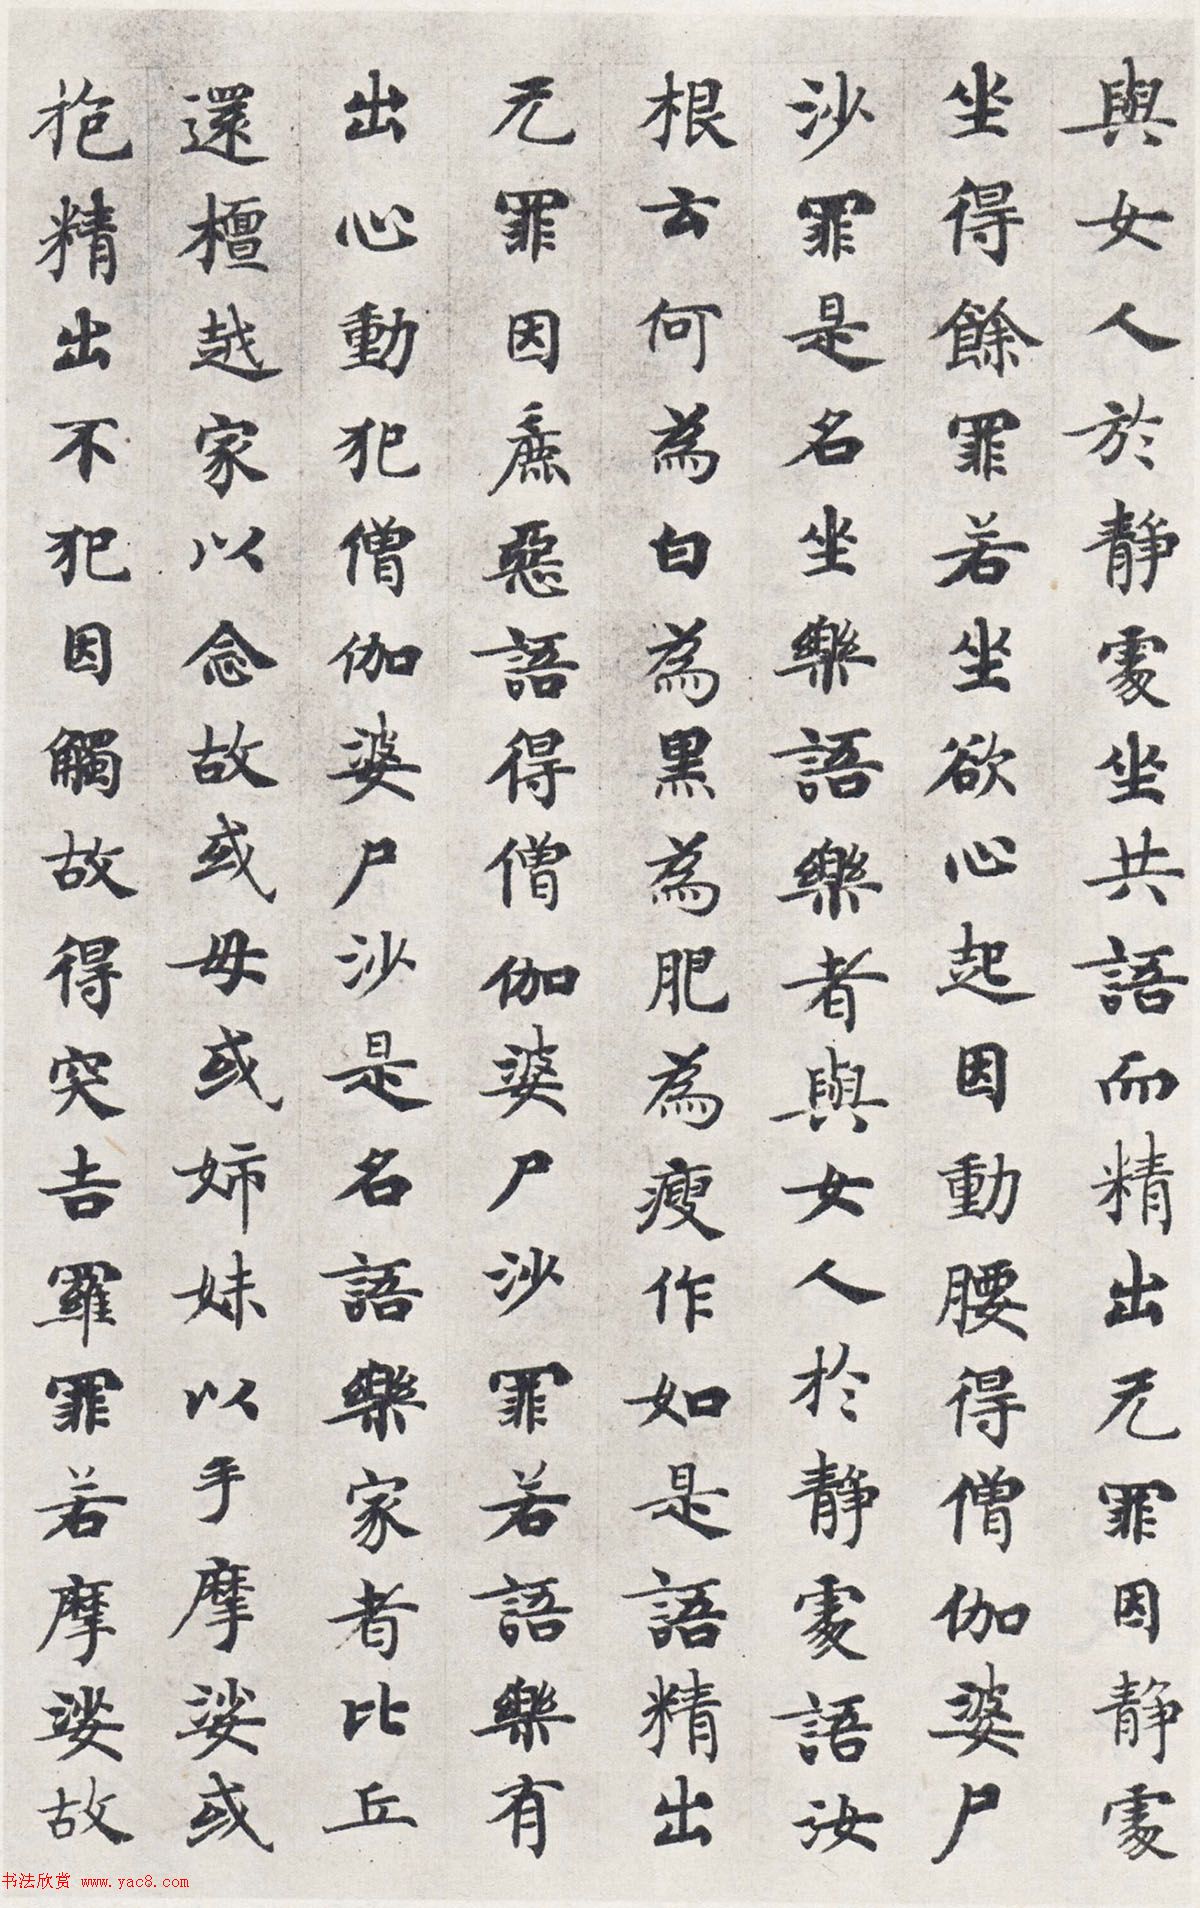 與女人於静處坐共語而精出无罪因静處
坐得餘罪若坐欲心起因動腰得僧伽婆尸
沙罪是名坐樂語樂者與女人於静處語汝
根云何為白為黑為肥為瘦作如是語精出
无罪因麁惡語得僧伽婆尸沙罪若語樂有
出心動犯僧伽婆尸沙是名語樂家者比丘
還檀越家以念故或母或姉妹以手摩娑或
抱精出不犯因觸故得突吉羅罪若摩娑故
书法欣赏 www.yac8.com